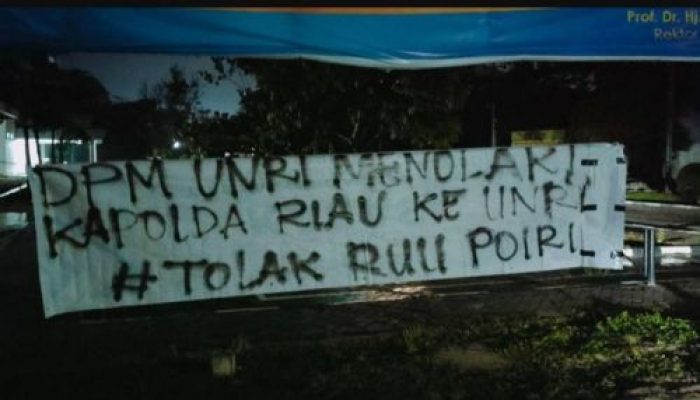 Prof. Dr. Hj
Rektor
DPM UNRI MENOLAK
KAPOLDA RIAU KE UNRI
#TOLAK RUU POLRI